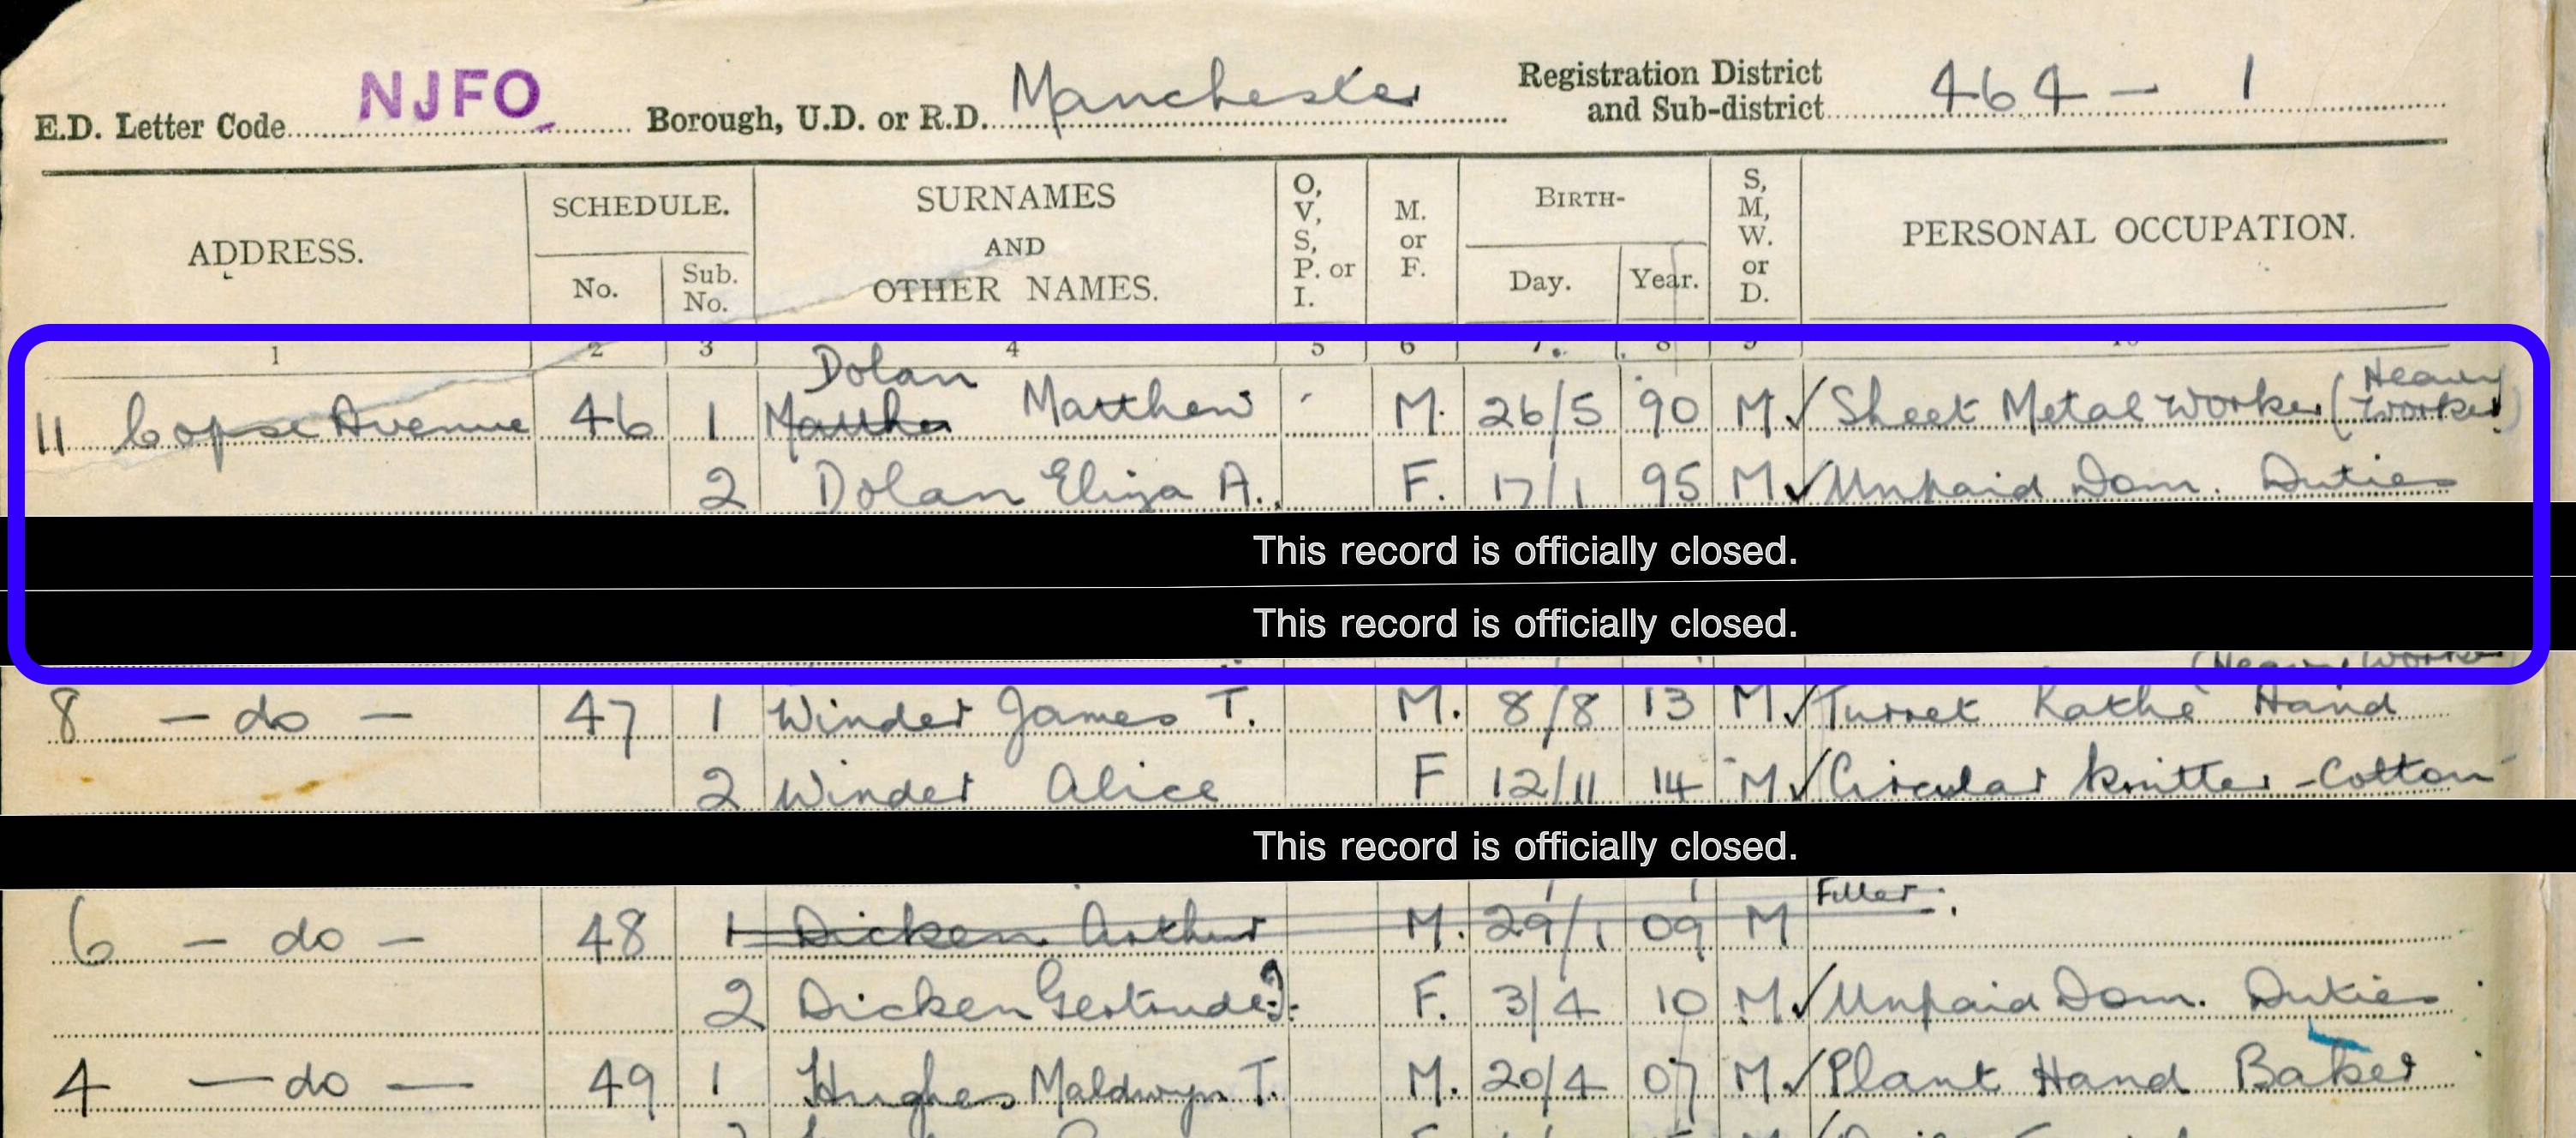 E.D. Letter Code NJFO Borough, U.D. or R.D. Manchester Registration District and Sub-district 464 - 1
ADDRESS. SCHEDULE. No. Sub. No. SURNAMES AND OTHER NAMES. O, V, S, P. or I. M. or F. BIRTH- Day. Year. S, M, W. or D. PERSONAL OCCUPATION.
1 2 3 4 5 6 7 8 9 10
Dolan
11 Copse Avenue 46 1 Matthew M. 26/5 90 M ✓ Sheet Metal Worker (Heavy Worker)
2 Dolan Eliza A. F. 17/1 95 M ✓ Unpaid Dom. Duties
This record is officially closed.
This record is officially closed.
(Heavy Worker
8 - do - 47 1 Winder James T. M. 8/8 13 M ✓ Turret Lathe Hand
2 Winder Alice F 12/11 14 M ✓ Circular Knitter - Cotton
This record is officially closed.
Filler.
6 - do - 48 1 Dicken Arthur M. 29/1 09 M
2 Dicken Gertrude J. F. 3/4 10 M ✓ Unpaid Dom. Duties
4 - do - 49 1 Hughes Maldwyn T. M. 20/4 07 M ✓ Plant Hand Baker